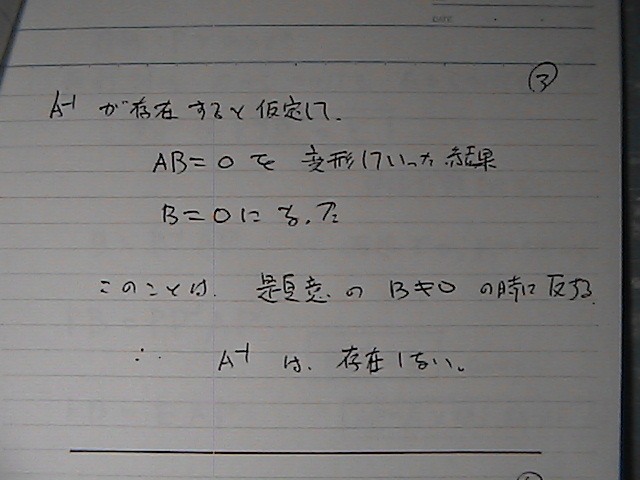 DATE
③
A⁻¹ が存在すると仮定して、
AB=0 を 変形していった結果
B=0になった
このことは、題意の B≠0 の時に反する。
∴ A⁻¹ は、存在しない。